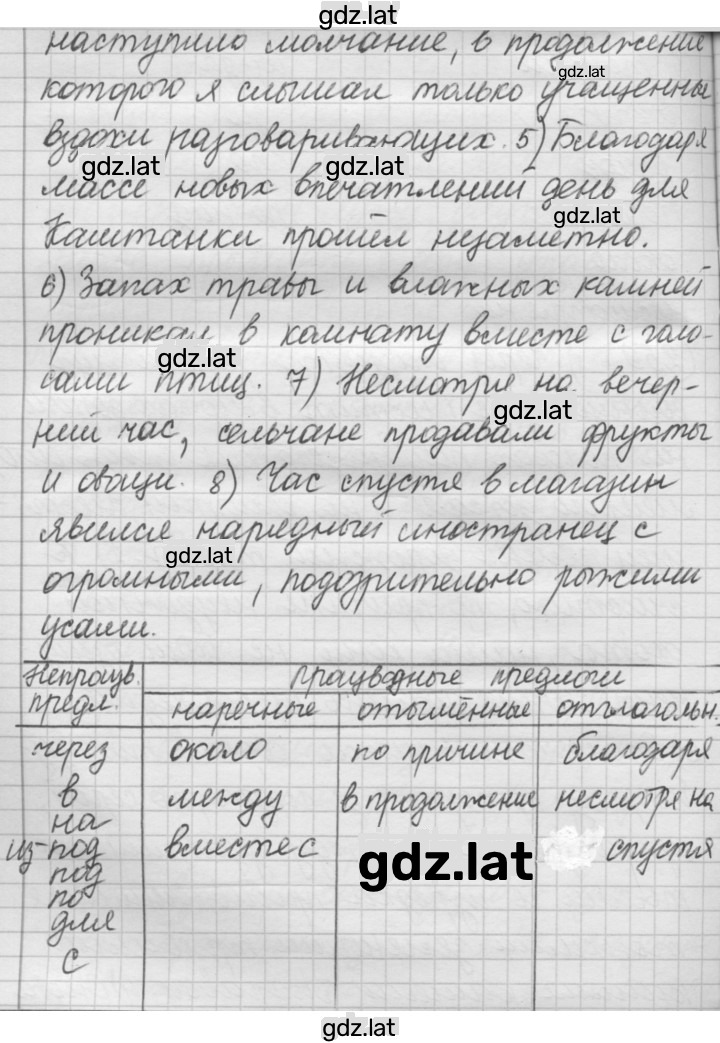 gdz.lat
наступило молчание, в продолжение
gdz.lat
которого я слышал только учащенны
вздохи разговаривающих. 5) Благодаря
gdz.lat
массе новых впечатлений день для
gdz.lat
Каштанки прошёл незаметно.
6) Запах травы и влажных камней
проникал в комнату вместе с голо-
gdz.lat
сами птиц. 7) Несмотря на вечер-
gdz.lat
ний час, сельчане продавали фрукты
и овощи. 8) Час спустя в магазин
явился нарядный иностранец с
gdz.lat
огромными, подозрительно рыжими
усами.
Непроизв. предл. производные предлоги
наречные отымённые отглагольн.
через около по причине благодаря
в между в продолжение несмотря на
на
из-под вместе с спустя
gdz.lat
под
по
для
с
gdz.lat